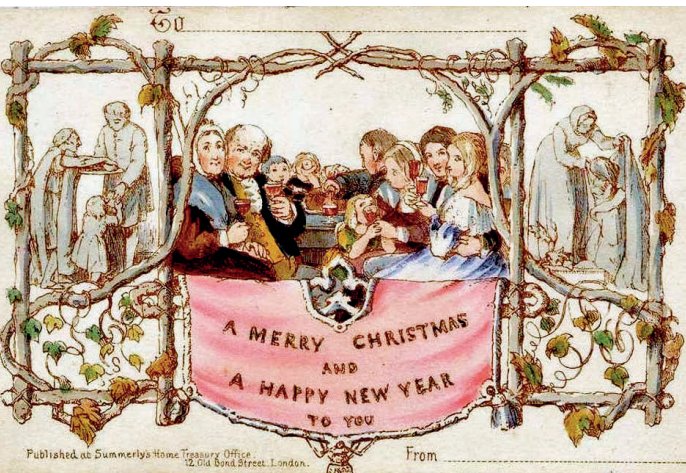 To
A MERRY CHRISTMAS
AND
A HAPPY NEW YEAR
TO YOU
Published at Summerly's Home Treasury Office
12. Old Bond Street. London.
From